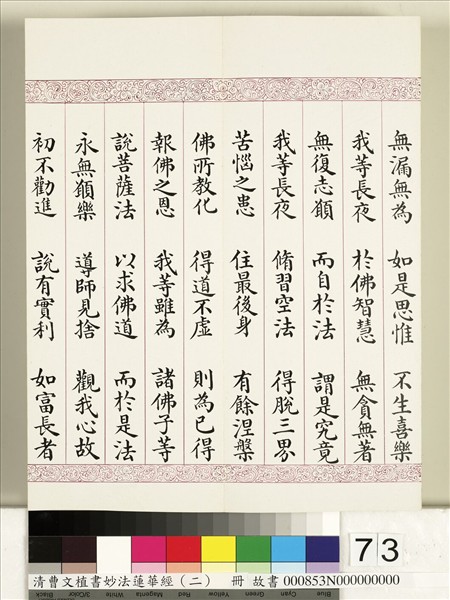 無漏無為 如是思惟 不生喜樂
我等長夜 於佛智慧 無貪無著
無復志願 而自於法 謂是究竟
我等長夜 脩習空法 得脫三界
苦惱之患 住最後身 有餘涅槃
佛所教化 得道不虛 則為已得
報佛之恩 我等雖為 諸佛子等
說菩薩法 以求佛道 而於是法
永無願樂 導師見捨 觀我心故
初不勸進 說有實利 如富長者
73
清曹文植書妙法蓮華經（二） 冊 故書 000853N000000000
Black 3/Color White Magenta Red Yellow Green Cyan Blue